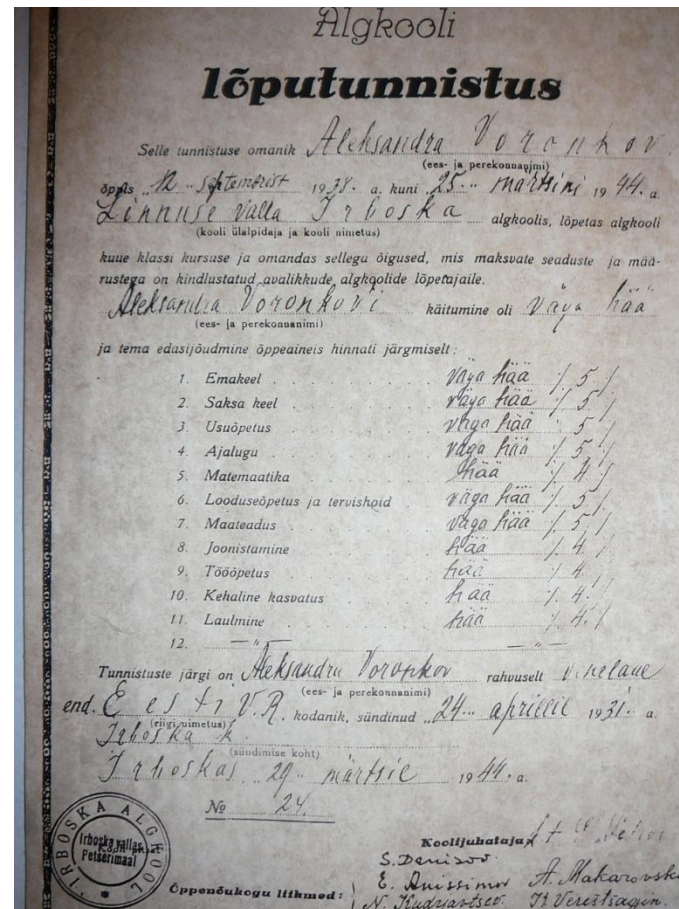 Algkooli
lõputunnistus
Selle tunnistuse omanik Aleksandra Voronkov
(ees- ja perekonnanimi)
õppis „12" septembrist 1938. a. kuni „25." märtsini 1944. a.
Linnuse valla Irboska algkoolis, lõpetas algkooli
(kooli ülalpidaja ja kooli nimetus)
kuue klassi kursuse ja omandas sellega õigused, mis maksvate seaduste ja mää-
rustega on kindlustatud avalikkude algkoolide lõpetajaile.
Aleksandra Voronkovi käitumine oli väga hää
(ees- ja perekonnanimi)
ja tema edasijõudmine õppeaineis hinnati järgmiselt:
1. Emakeel väga hää /5/
2. Saksa keel väga hää /5/
3. Usuõpetus väga hää /5/
4. Ajalugu väga hää /5/
5. Matemaatika hää /4/
6. Looduseõpetus ja tervishoid väga hää /5/
7. Maateadus väga hää /5/
8. Joonistamine hää /4./
9. Tööõpetus hää /4./
10. Kehaline kasvatus hää /4./
11. Laulmine hää /4./
12. —"— —"—
Tunnistuste järgi on Aleksandra Voronkov rahvuselt venelane
(ees- ja perekonnanimi)
end. Eesti V.R. kodanik, sündinud „24." aprillil 1931. a.
(riigi nimetus)
Irboska k.
(sündimise koht)
Irboskas „29" märtsil 1944. a.
№ 24.
IRBOSKA ALGKOOL
Irboska vallas
Petserimaal
Koolijuhataja
S. Denisov
Õppenõukogu liikmed: E. Anissimov A. Makarovsk
N. Kudrjavtsev. Verestsagin.